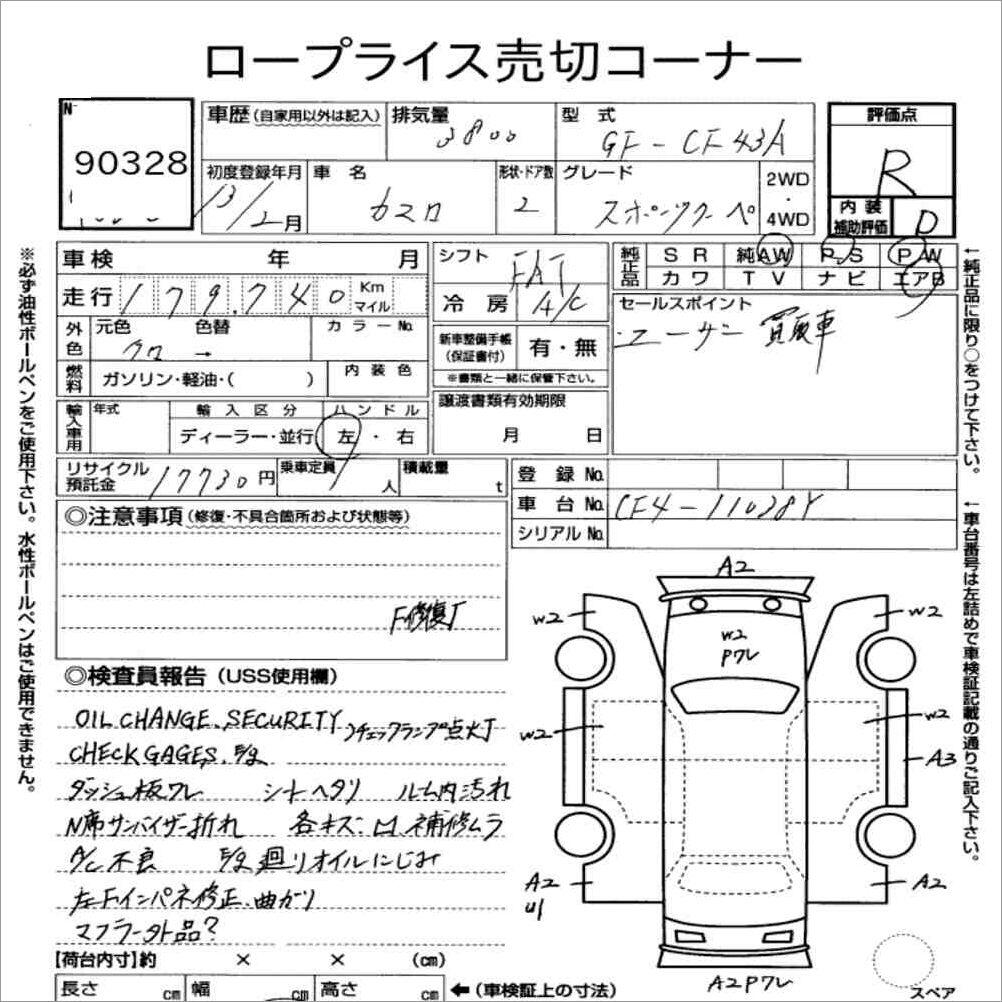 ロープライス売切コーナー
90328
車歴 (自家用以外は記入) 排気量 3800 型式 GF-CF43A 評価点 R
初度登録年月 13/2月 車名 カマロ 形状・ドア数 2 グレード スポーツクーペ 2WD・4WD 内装補助評価 D
車検 年 月 シフト FAT 純正品 SR 純AW P-S P/W
カワ TV ナビ エアB
走行 179,740 Km マイル 冷房 A/C セールスポイント
・ユーザー買取車
外色 元色 色替 カラーNo. クロ →
新車整備手帳(保証書付) 有・無
※書類と一緒に保管下さい。
燃料 ガソリン・軽油・( ) 内装色
譲渡書類有効期限
月 日
輸入車用 年式 輸入区分 ハンドル
ディーラー・並行 左・右
リサイクル預託金 17730円 乗車定員 人 積載量 t 登録No.
車台No. CF4-
シリアルNo.
◎注意事項 (修復・不具合箇所および状態等)
F修復了
◎検査員報告 (USS使用欄)
OIL CHANGE. SECURITY
CHECK GAGES. E/g チェックランプ点灯
ダッシュ板ワレ シートヘタリ ルーム内汚れ
N席サンバイザー折れ 各キズ・凹、補修ムラ
A/C不良 E/g廻りオイルにじみ
左Fインパネ修正、曲がり
マフラー外品?
【荷台内寸】約 × × (cm)
長さ cm 幅 cm 高さ cm ←(車検証上の寸法)
A2
W2 W2
W2
Pワレ
W2 W2
A3
A2
U1
A2
A2Pワレ
スペア
※必ず油性ボールペンをご使用下さい。水性ボールペンはご使用できません。
←純正品に限り○をつけて下さい。
←車台番号は左詰めで車検証記載の通りご記入下さい。